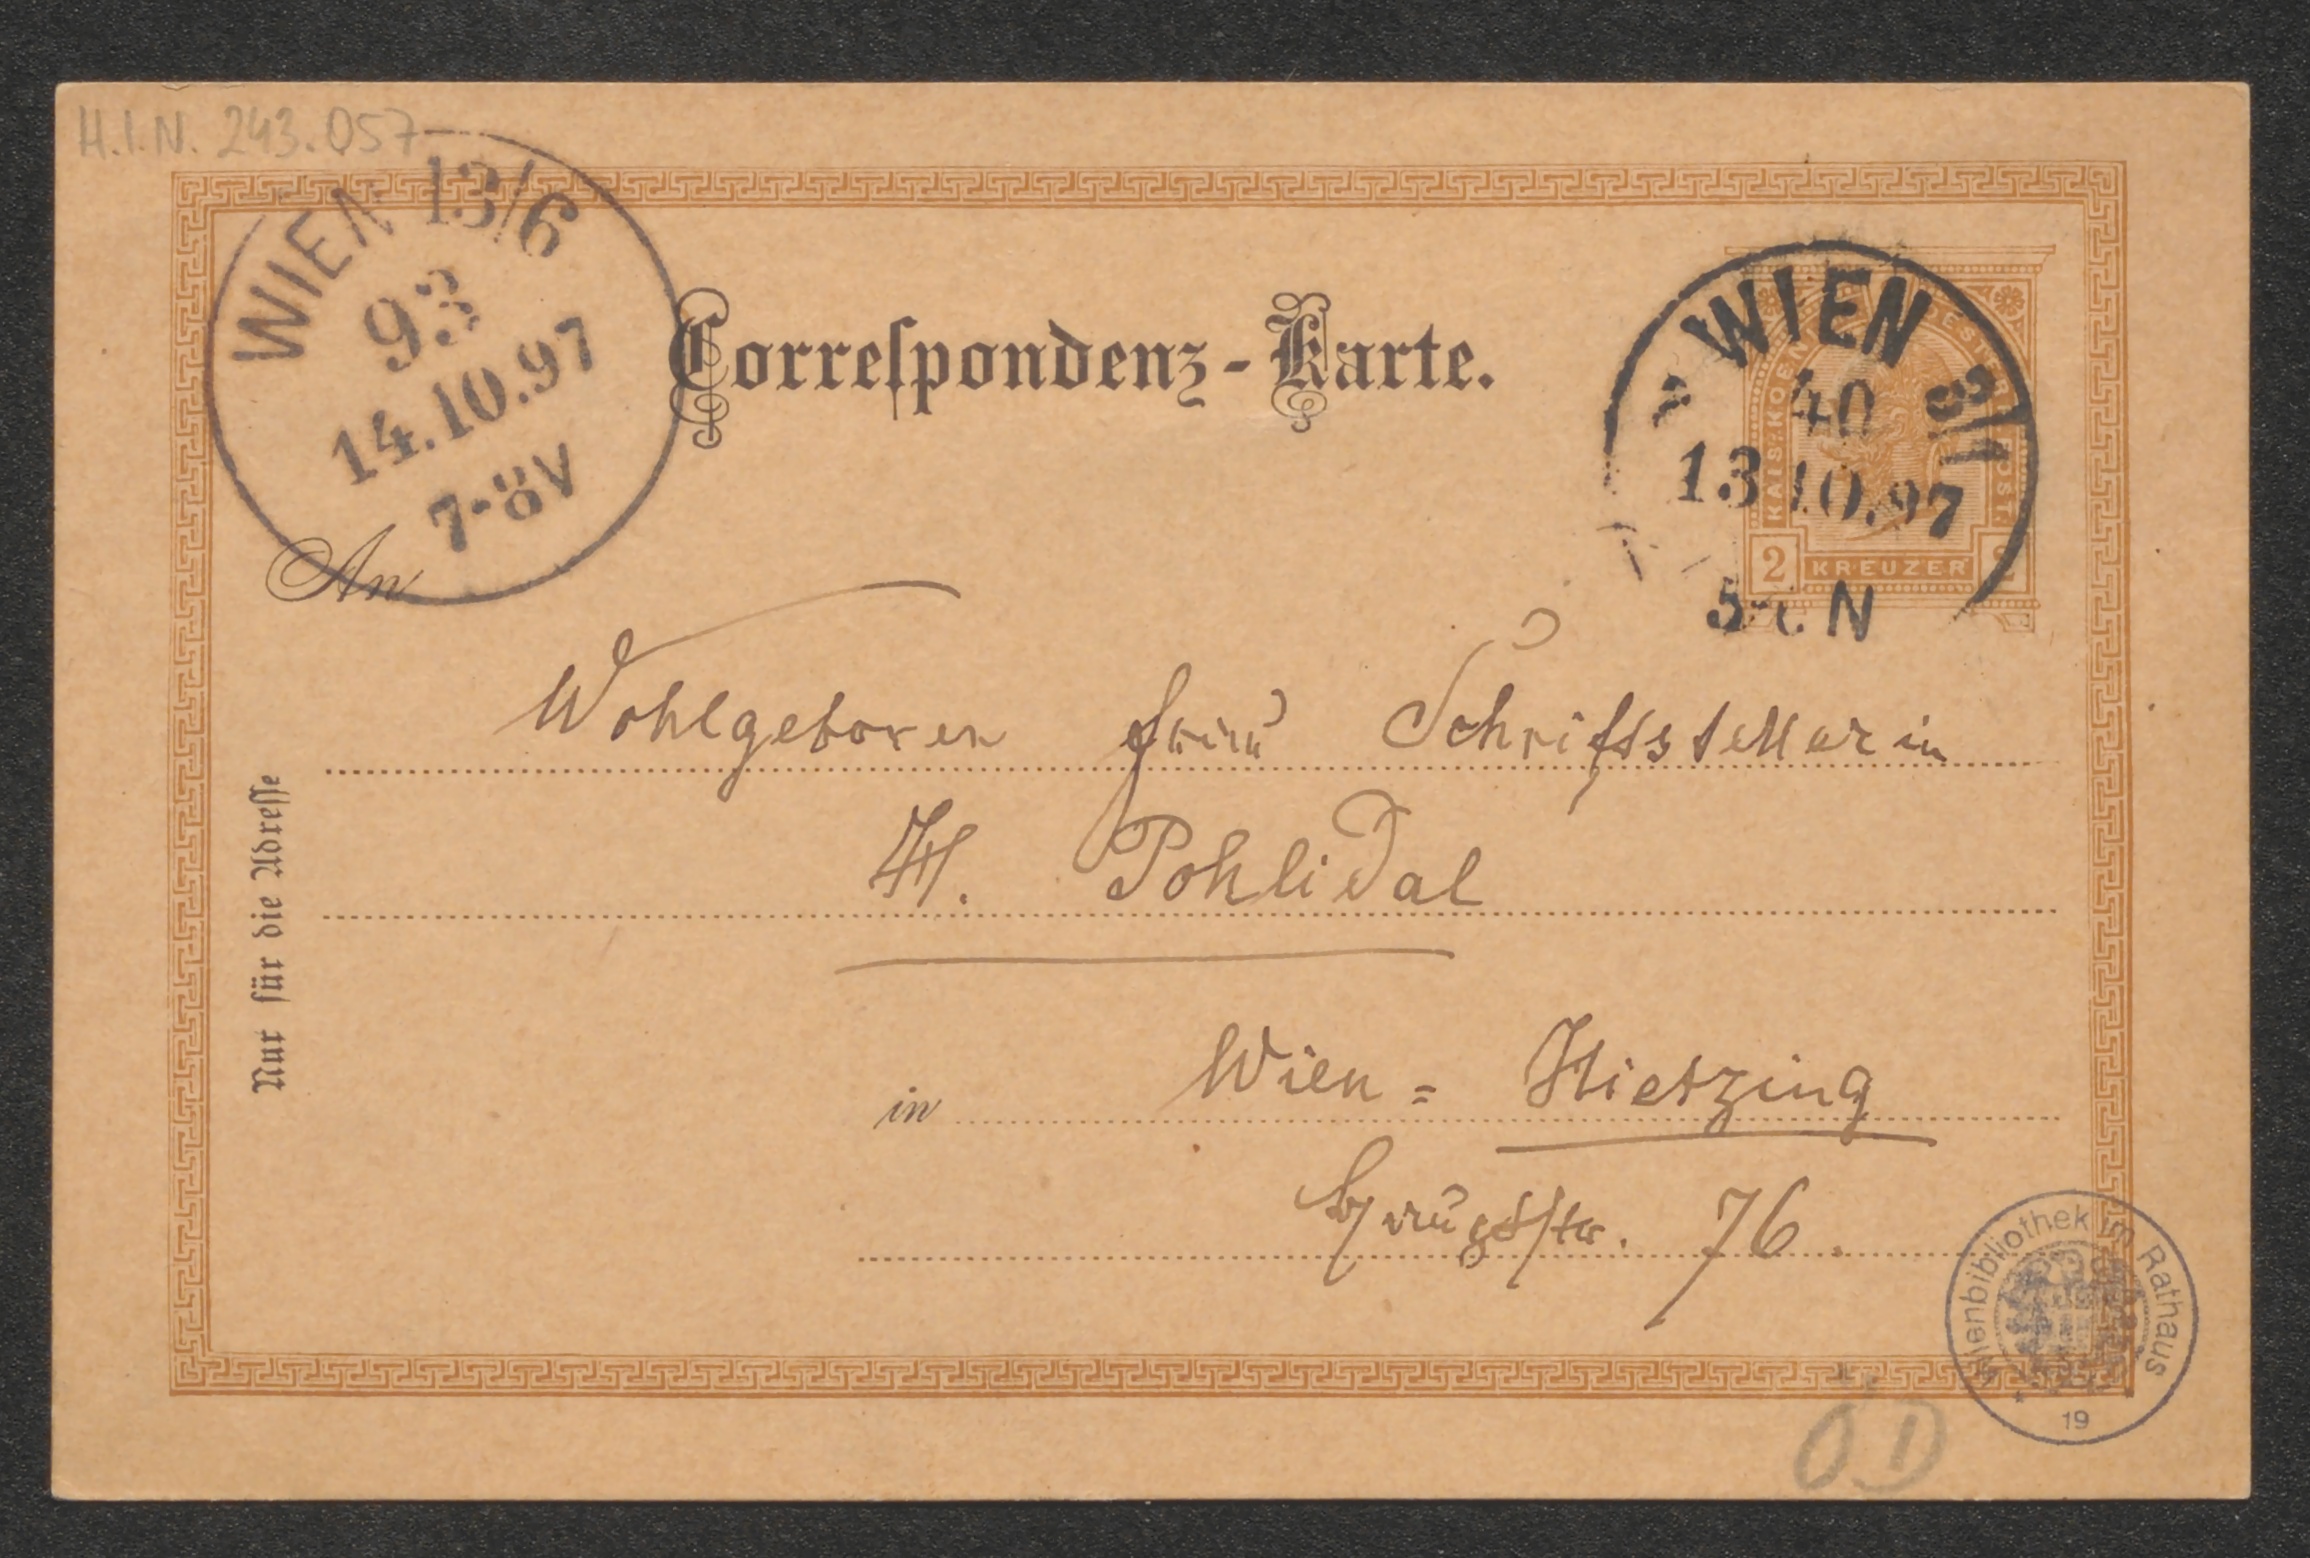 H.I.N. 243.057
WIEN 13/6
93
14.10.97
7-8V
Correspondenz-Karte.
WIEN 3/1
40
13 10.97
N
2 KREUZER 2
An
Wohlgeboren Frau Schriftstellerin
H. Pohlidal
in Wien = Hietzing
76.
Nur für die Adresse
Wienbibliothek im Rathaus
19